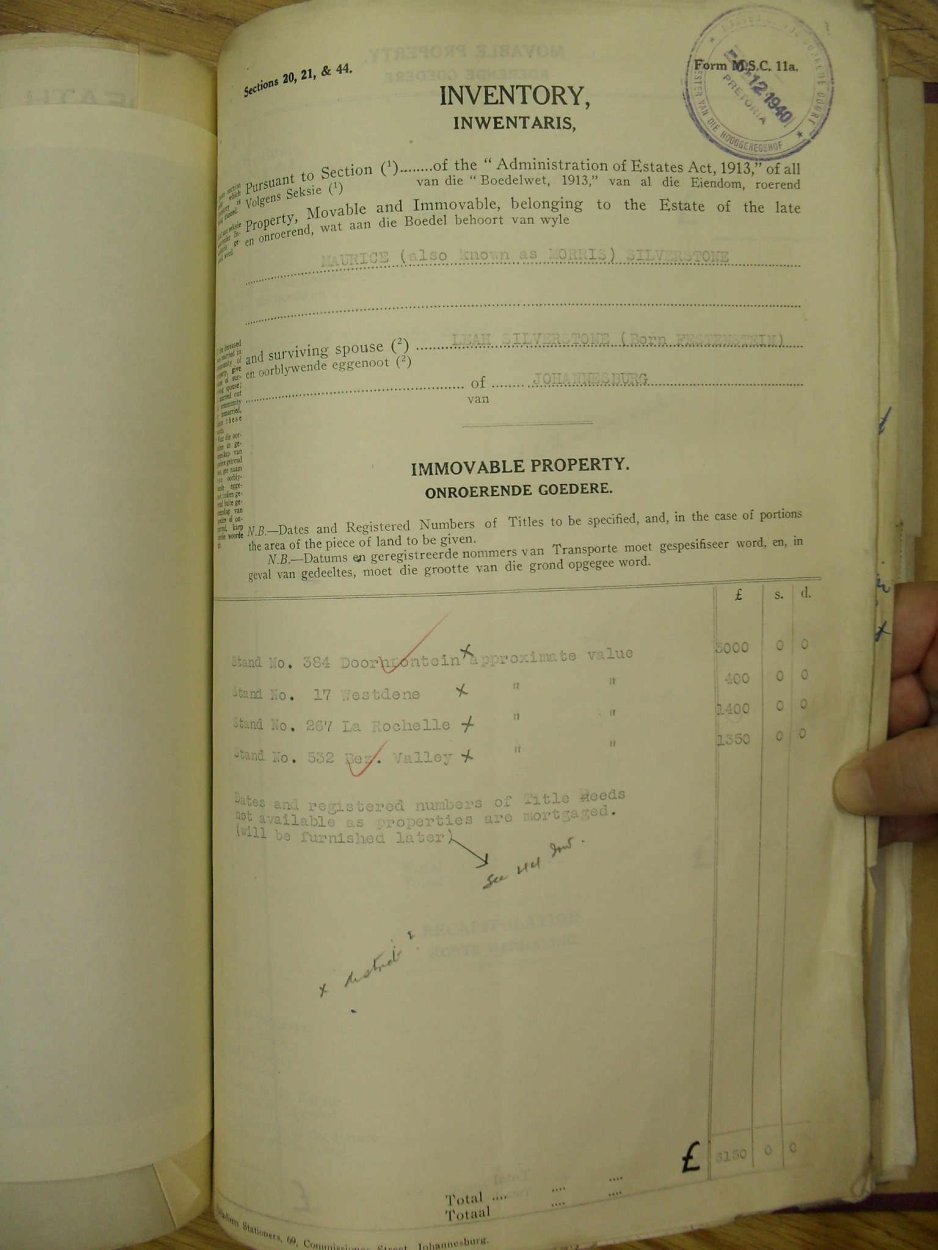 Sections 20, 21, & 44.
Form M.S.C. 11a.
12 1940
PRETORIA
MEESTER VAN DIE HOOGGEREGSHOF
INVENTORY,
INWENTARIS,
Pursuant to Section (¹)........of the "Administration of Estates Act, 1913," of all
Volgens Seksie (¹) van die "Boedelwet, 1913," van al die Eiendom, roerend
Property, Movable and Immovable, belonging to the Estate of the late
en onroerend, wat aan die Boedel behoort van wyle
MAURICE (also known as MORRIS) SILVERSTONE
and surviving spouse (²) LEAH SILVERSTONE (Born
en oorblywende eggenoot (²)
of JOHANNESBURG
van
IMMOVABLE PROPERTY.
ONROERENDE GOEDERE.
N.B.—Dates and Registered Numbers of Titles to be specified, and, in the case of portions
the area of the piece of land to be given.
N.B.—Datums en geregistreerde nommers van Transporte moet gespesifiseer word, en, in
geval van gedeeltes, moet die grootte van die grond opgegee word.
£ s. d.
Stand No. 384 Doornfontein x approximate value 0 0
Stand No. 17 Westdene x " " 400 0 0
Stand No. 267 La Rochelle x " " 1400 0 0
Stand No. 532 Bez. Valley x " " 1350 0 0
Dates and registered numbers of Title Deeds
not available as properties are mortgaged.
(will be furnished later)
See
x district ?
£ 0 0
Total .... .... ....
Totaal .... ....
Stationers, 60, Commissioner Street, Johannesburg.